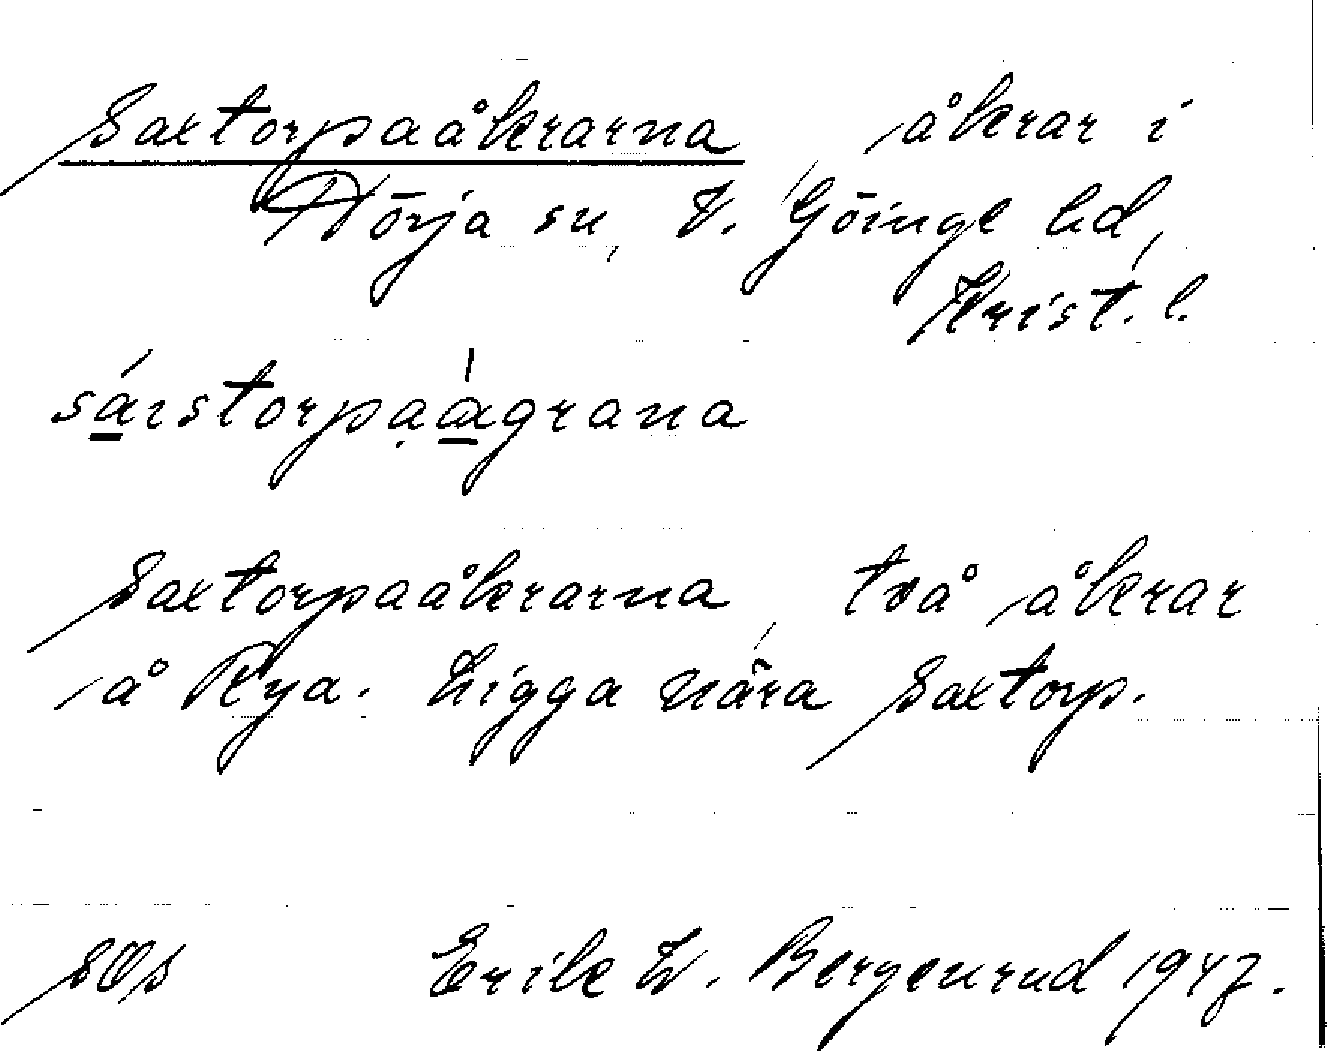 Saxtorpaåkrarna, åkrar i
Nörja sn, V. Göinge hd,
Krist. l.
Saxtorpaåkrarna, två åkrar
å Rya. Ligga nära Saxtorp.
Erik W. Bergenrud 1947.